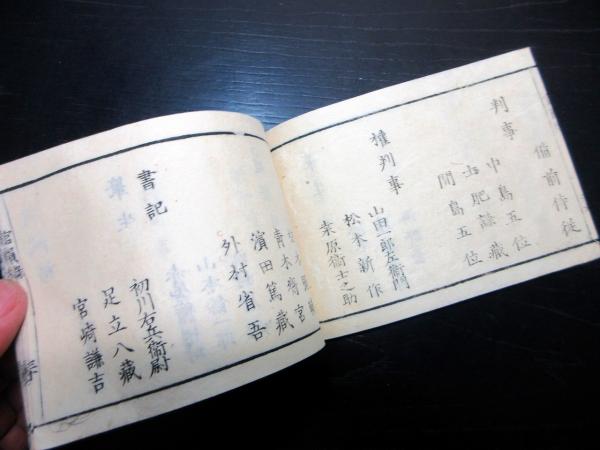 備前侍従
判事
中島五位
土肥謙藏
間島五位
權判事
山田一郎左衛門
松本新作
桒原衛士之助
濱田篤藏
外村省吾
書記
初川右兵衛尉
足立八藏
宮崎謙吉